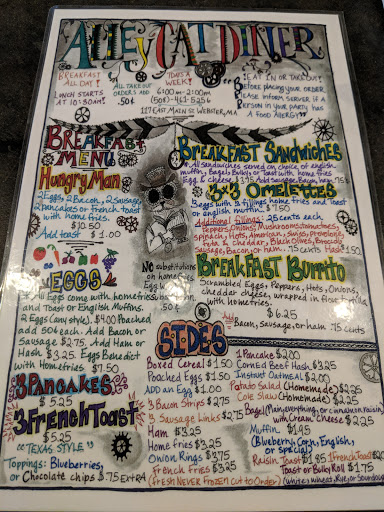 ALLEY CAT DINER
BREAKFAST
ALL DAY!
LUNCH STARTS
AT 10:30AM!
ALL TAKE OUT
ORDERS ADD
.50¢
7 DAYS A
WEEK!
6:00am-2:00pm
(508)-461-5256
117 EAST MAIN ST WEBSTER, MA
EAT IN OR TAKE OUT!
BEFORE PLACING YOUR ORDER,
PLEASE INFORM SERVER IF A
PERSON IN YOUR PARTY HAS
A FOOD ALLERGY
BREAKFAST
MENU
HUNGRY MAN
2 Eggs, 2 Bacon, 2 Sausage,
2 Pancakes or French toast
with home fries.
$10.50
Add toast $1.00
EGGS
All Eggs come with homefries
and Toast or English Muffins.
2 Eggs (any style). $4.00 Poached
add 50¢ each. Add Bacon or
Sausage $2.75. Add Ham or
Hash $3.25. Eggs Benedict
with Homefries $7.50
3 PANCAKES
$5.25
3 FRENCH TOAST
$5.25
"TEXAS STYLE"
Toppings: Blueberries,
or Chocolate chips $.75 EXTRA
NO substitutions
on homefries
BREAKFAST SANDWICHES
All sandwiches served on choice of english
muffin, Bagel, Bulky or Toast with home fries
Egg & cheese $3.95 Add sausage, Bacon, ham
3x3 OMELETTES
3 eggs with 3 fillings home fries and toast
or english muffin. $7.50
Additional fillings: 25 cents each
Peppers, Onions, Mushrooms, tomatoes,
spinach, Hots, American, Swiss, Provolone,
feta & cheddar, Black Olives, Broccoli
Sausage, Bacon, or ham .75 cents
BREAKFAST BURRITO
Scrambled Eggs, Peppers, Hots, Onions,
cheddar cheese, wrapped in flour tortilla
with homefries.
$6.25
Add
Bacon, Sausage, or ham .75 cents
SIDES
Boxed Cereal $1.50
Poached Eggs $1.50
ADD an EGG $1.00
3 Bacon Strips $2.75
3 Sausage Links $2.75
Ham $3.25
Home fries $3.25
Onion Rings $3.75
French Fries $3.25
(FRESH NEVER FROZEN CUT to ORDER)
1 Pancake $2.00
Corned Beef Hash $3.25
Instant Oatmeal $2.00
Potato Salad (Homemade) $2.25
Cole Slaw (Homemade) $2.25
Bagel (Plain, everything, or cinnamon raisin)
with Cream Cheese $2.25
Muffin $1.95
(Blueberry, Corn, English,
or special)
Raisin Toast $1.85 1 French Toast $2.00
Toast or Bulky Roll $1.75
(white, wheat, Rye, or Sourdough)